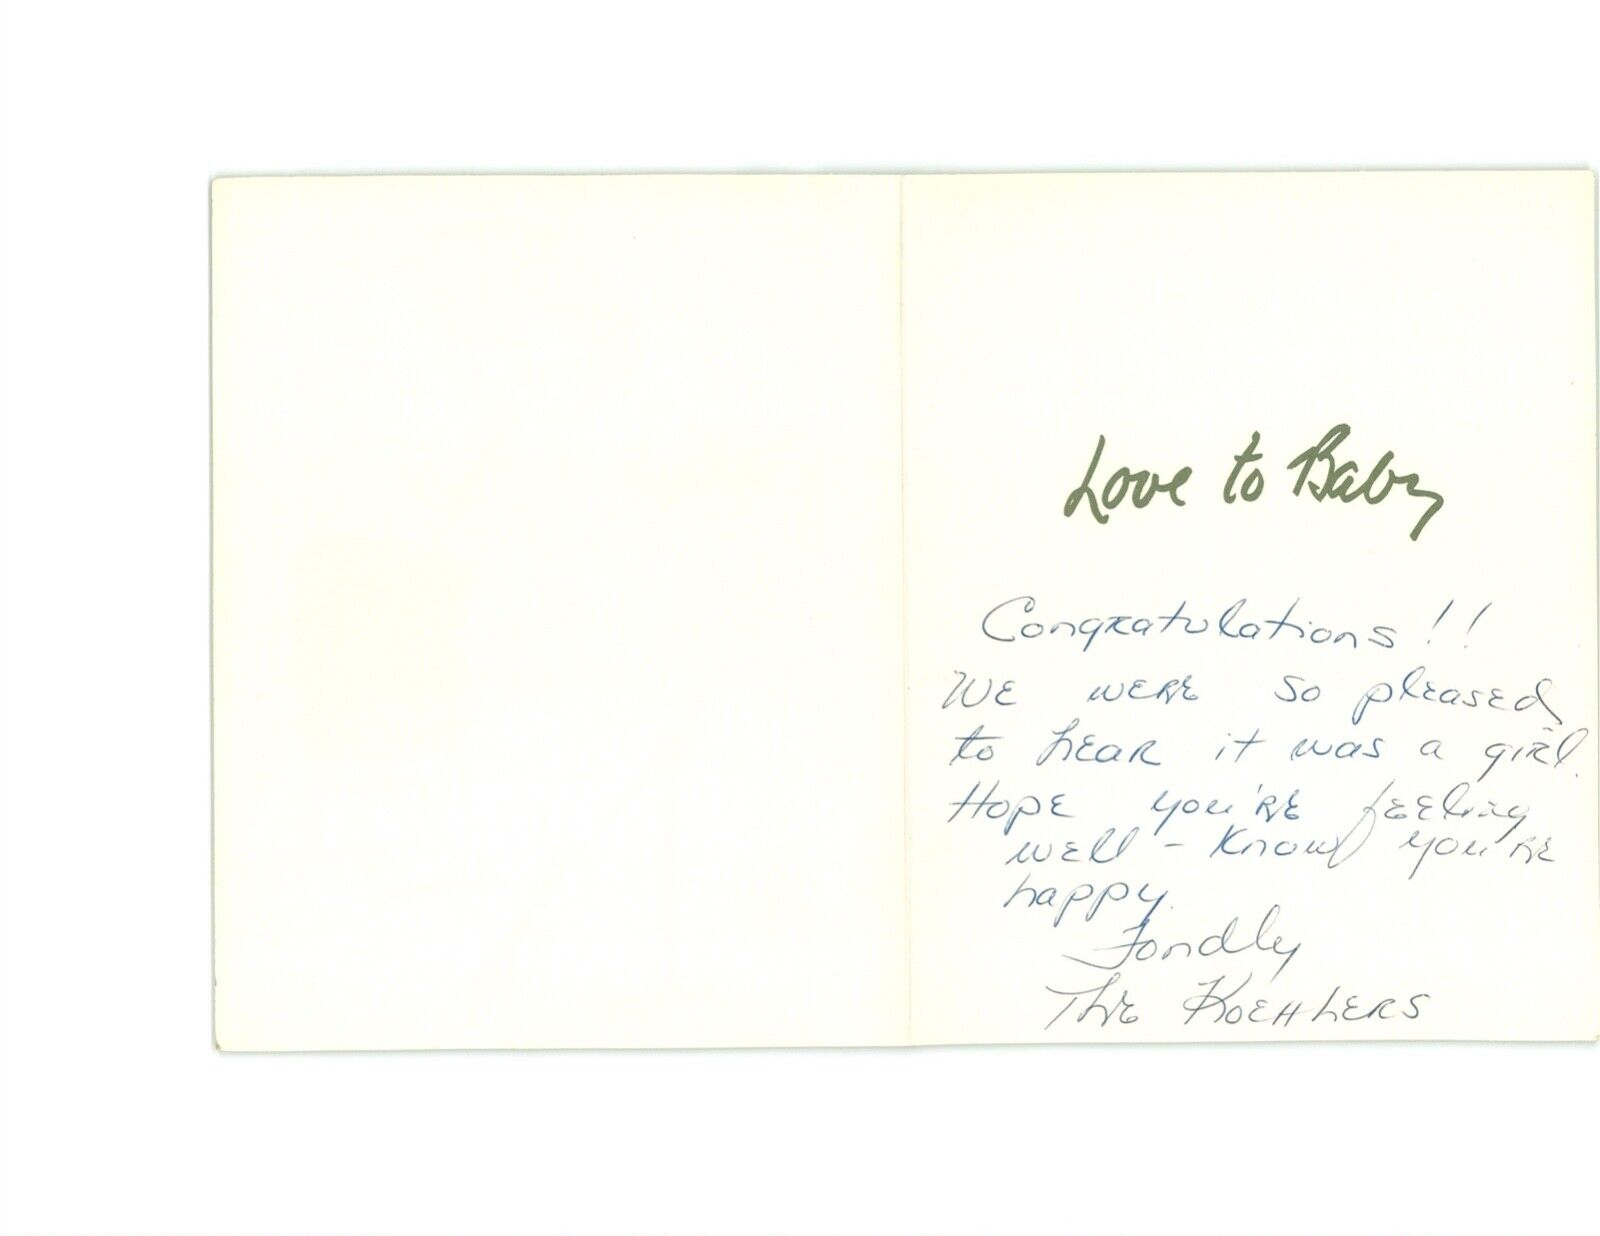 Love to Baby
Congratulations!!
We were so pleased
to hear it was a girl.
Hope you're feeling
well - know you're
happy.
Fondly
The Koehlers